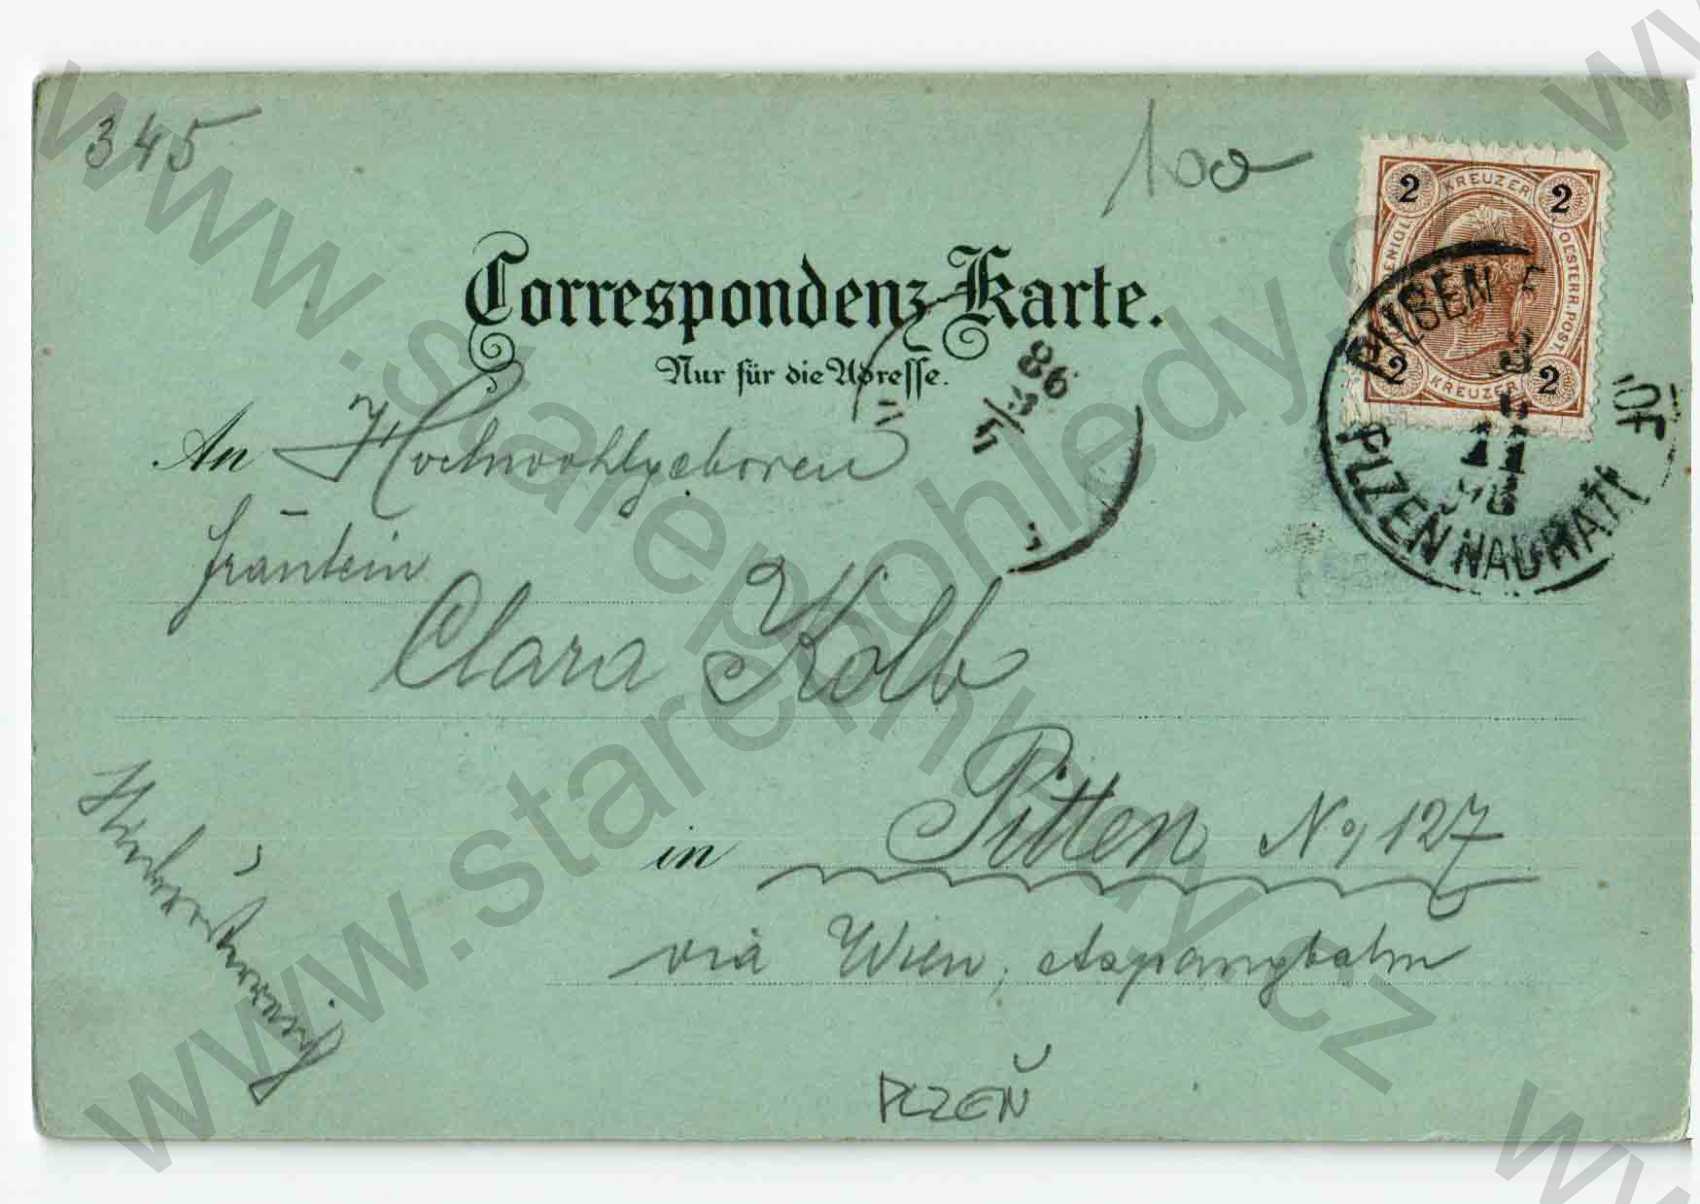 345
100
2 KREUZER 2
OESTERR. POST
2 KREUZER 2
PILSEN
11
98
PLZEN NADRAZI
Correspondenz-Karte.
Nur für die Adresse.
98
An Hochwohlgeboren
Fräulein
Clara Kolb
in Pitten No, 127
via Wien, Aspangbahn
PLZEŇ
www.starepohledy.cz
www.starepohledy.cz